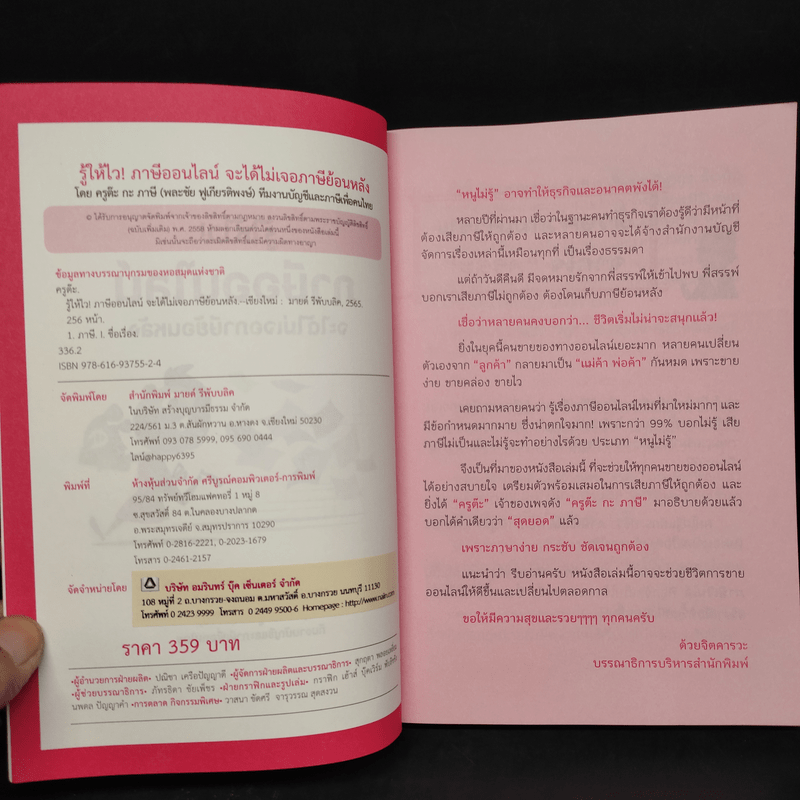 รู้ให้ไว! ภาษีออนไลน์ จะได้ไม่เจอภาษีย้อนหลัง
โดย ครูต๊ะ กะ ภาษี (พละชัย ฟูเกียรติพงษ์) ทีมงานบัญชีและภาษีเพื่อคนไทย
© ได้รับการอนุญาตจัดพิมพ์จากเจ้าของลิขสิทธิ์ตามกฎหมาย สงวนลิขสิทธิ์ตามพระราชบัญญัติลิขสิทธิ์
(ฉบับเพิ่มเติม) พ.ศ. 2558 ห้ามลอกเลียนส่วนใดส่วนหนึ่งของหนังสือเล่มนี้
มิเช่นนั้นจะถือว่าละเมิดลิขสิทธิ์และมีความผิดทางอาญา
ข้อมูลทางบรรณานุกรมของหอสมุดแห่งชาติ
ครูต๊ะ.
รู้ให้ไว! ภาษีออนไลน์ จะได้ไม่เจอภาษีย้อนหลัง.--เชียงใหม่ : มายด์ รีพับบลิค, 2565.
256 หน้า.
1. ภาษี. I. ชื่อเรื่อง.
336.2
ISBN 978-616-93755-2-4
จัดพิมพ์โดย สำนักพิมพ์ มายด์ รีพับบลิค
ในบริษัท สร้างบุญบารมีธรรม จำกัด
224/561 ม.3 ต.สันผักหวาน อ.หางดง จ.เชียงใหม่ 50230
โทรศัพท์ 093 078 5999, 095 690 0444
ไลน์@happy6395
พิมพ์ที่ ห้างหุ้นส่วนจำกัด ศรีบูรณ์คอมพิวเตอร์-การพิมพ์
95/84 ทรัพย์ทวีโฮมแฟคทอรี่ 1 หมู่ 8
ซ.สุขสวัสดิ์ 84 ต.ในคลองบางปลากด
อ.พระสมุทรเจดีย์ จ.สมุทรปราการ 10290
โทรศัพท์ 0-2816-2221, 0-2023-1679
โทรสาร 0-2461-2157
จัดจำหน่ายโดย บริษัท อมรินทร์ บุ๊ค เซ็นเตอร์ จำกัด
108 หมู่ที่ 2 ถ.บางกรวย-จงถนอม ต.มหาสวัสดิ์ อ.บางกรวย นนทบุรี 11130
โทรศัพท์ 0 2423 9999 โทรสาร 0 2449 9500-6 Homepage : http://www.naiin.com
ราคา 359 บาท
•ผู้อำนวยการฝ่ายผลิต• ปณิชา เครือปัญญาดี •ผู้จัดการฝ่ายผลิตและบรรณาธิการ• สุกฤตา
•ผู้ช่วยบรรณาธิการ• ภัทรธิดา ชัยเพ็ชร •ฝ่ายกราฟิกและรูปเล่ม• กราฟิก เฮ้าส์
นพดล ปัญญาคำ •การตลาด กิจกรรมพิเศษ• วาสนา ขัดศรี จารุวรรณ สุดสงวน
“หนูไม่รู้” อาจทำให้ธุรกิจและอนาคตพังได้!
หลายปีที่ผ่านมา เชื่อว่าในฐานะคนทำธุรกิจเราต้องรู้ดีว่ามีหน้าที่
ต้องเสียภาษีให้ถูกต้อง และหลายคนอาจจะได้จ้างสำนักงานบัญชี
จัดการเรื่องเหล่านี้เหมือนทุกที่ เป็นเรื่องธรรมดา
แต่ถ้าวันดีคืนดี มีจดหมายรักจากพี่สรรพ์ให้เข้าไปพบ พี่สรรพ์
บอกเราเสียภาษีไม่ถูกต้อง ต้องโดนเก็บภาษีย้อนหลัง
เชื่อว่าหลายคนคงบอกว่า... ชีวิตเริ่มไม่น่าจะสนุกแล้ว!
ยิ่งในยุคนี้คนขายของทางออนไลน์เยอะมาก หลายคนเปลี่ยน
ตัวเองจาก “ลูกค้า” กลายมาเป็น “แม่ค้า พ่อค้า” กันหมด เพราะขาย
ง่าย ขายคล่อง ขายไว
เคยถามหลายคนว่า รู้เรื่องภาษีออนไลน์ไหมที่มาใหม่มากๆ และ
มีข้อกำหนดมากมาย ซึ่งน่าตกใจมาก! เพราะกว่า 99% บอกไม่รู้ เสีย
ภาษีไม่เป็นและไม่รู้จะทำอย่างไรด้วย ประเภท “หนูไม่รู้”
จึงเป็นที่มาของหนังสือเล่มนี้ ที่จะช่วยให้ทุกคนขายของออนไลน์
ได้อย่างสบายใจ เตรียมตัวพร้อมเสมอในการเสียภาษีให้ถูกต้อง และ
ยิ่งได้ “ครูต๊ะ” เจ้าของเพจดัง “ครูต๊ะ กะ ภาษี” มาอธิบายด้วยแล้ว
บอกได้คำเดียวว่า “สุดยอด” แล้ว
เพราะภาษาง่าย กระชับ ชัดเจนถูกต้อง
แนะนำว่า รีบอ่านครับ หนังสือเล่มนี้อาจจะช่วยชีวิตการขาย
ออนไลน์ให้ดีขึ้นและเปลี่ยนไปตลอดกาล
ขอให้มีความสุขและรวยๆๆๆๆ ทุกคนครับ
ด้วยจิตคารวะ
บรรณาธิการบริหารสำนักพิมพ์